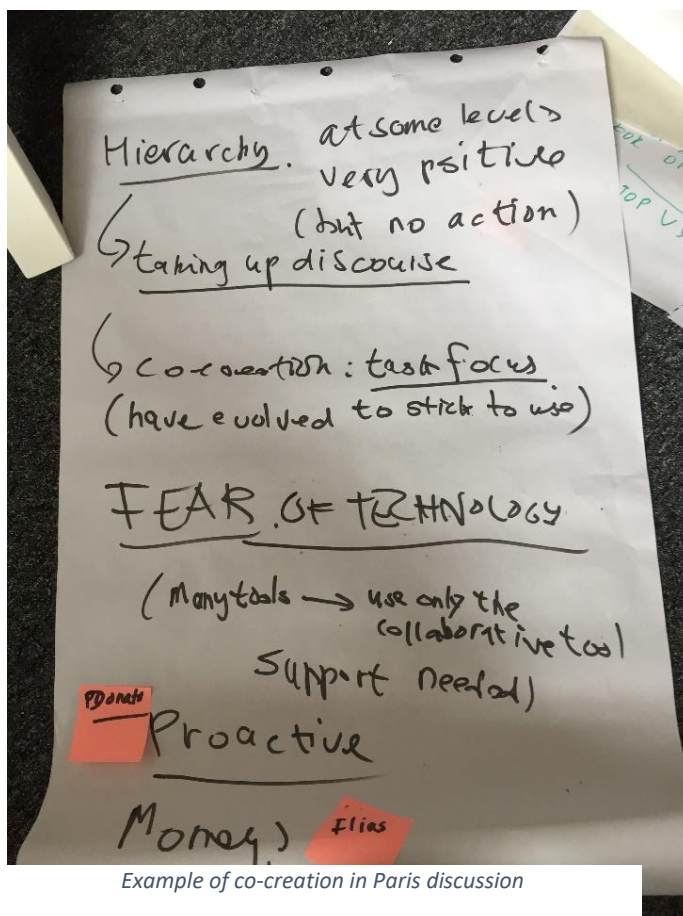 Hierarchy. at some levels
very psitive
(but no action)
taking up discourse
co-creation: task focus
(have evolved to stick to use)
FEAR OF TECHNOLOGY
(Many tools → use only the
collaborative tool
support needed)
PDonato
Proactive
Money
Ilias
FOR
TOP
Example of co-creation in Paris discussion